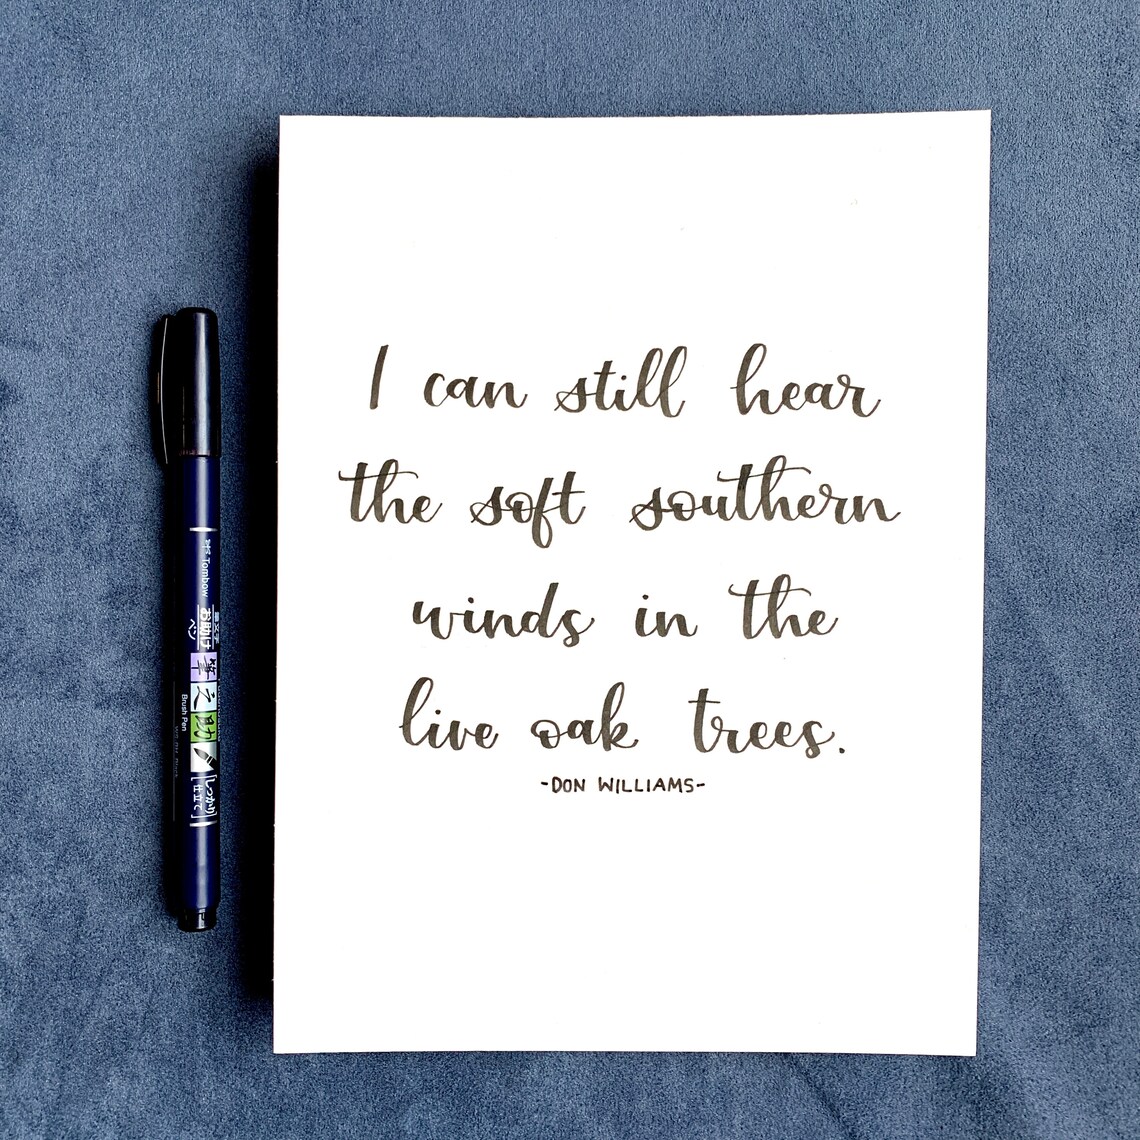 I can still hear
the soft southern
winds in the
live oak trees.
-DON WILLIAMS-
Tombow
お助け
ペン
筆之助
Brush Pen
しっかり
仕立て